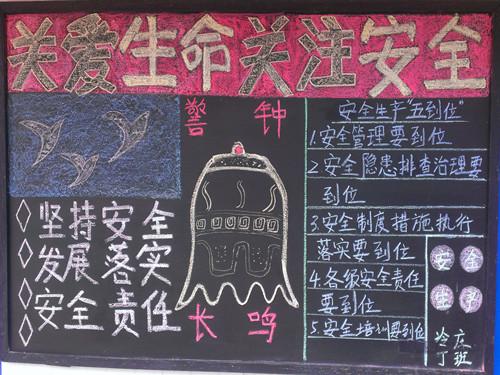 关爱生命关注安全
警钟
长鸣
坚持安全
发展落实
安全责任
安全生产"五到位"
1.安全管理要到位
2.安全隐患排查治理要
到位
3.安全制度措施执行
落实要到位
4.各级安全责任
要到位
5.安全培训要到位
安全
生产
冷庄
丁班